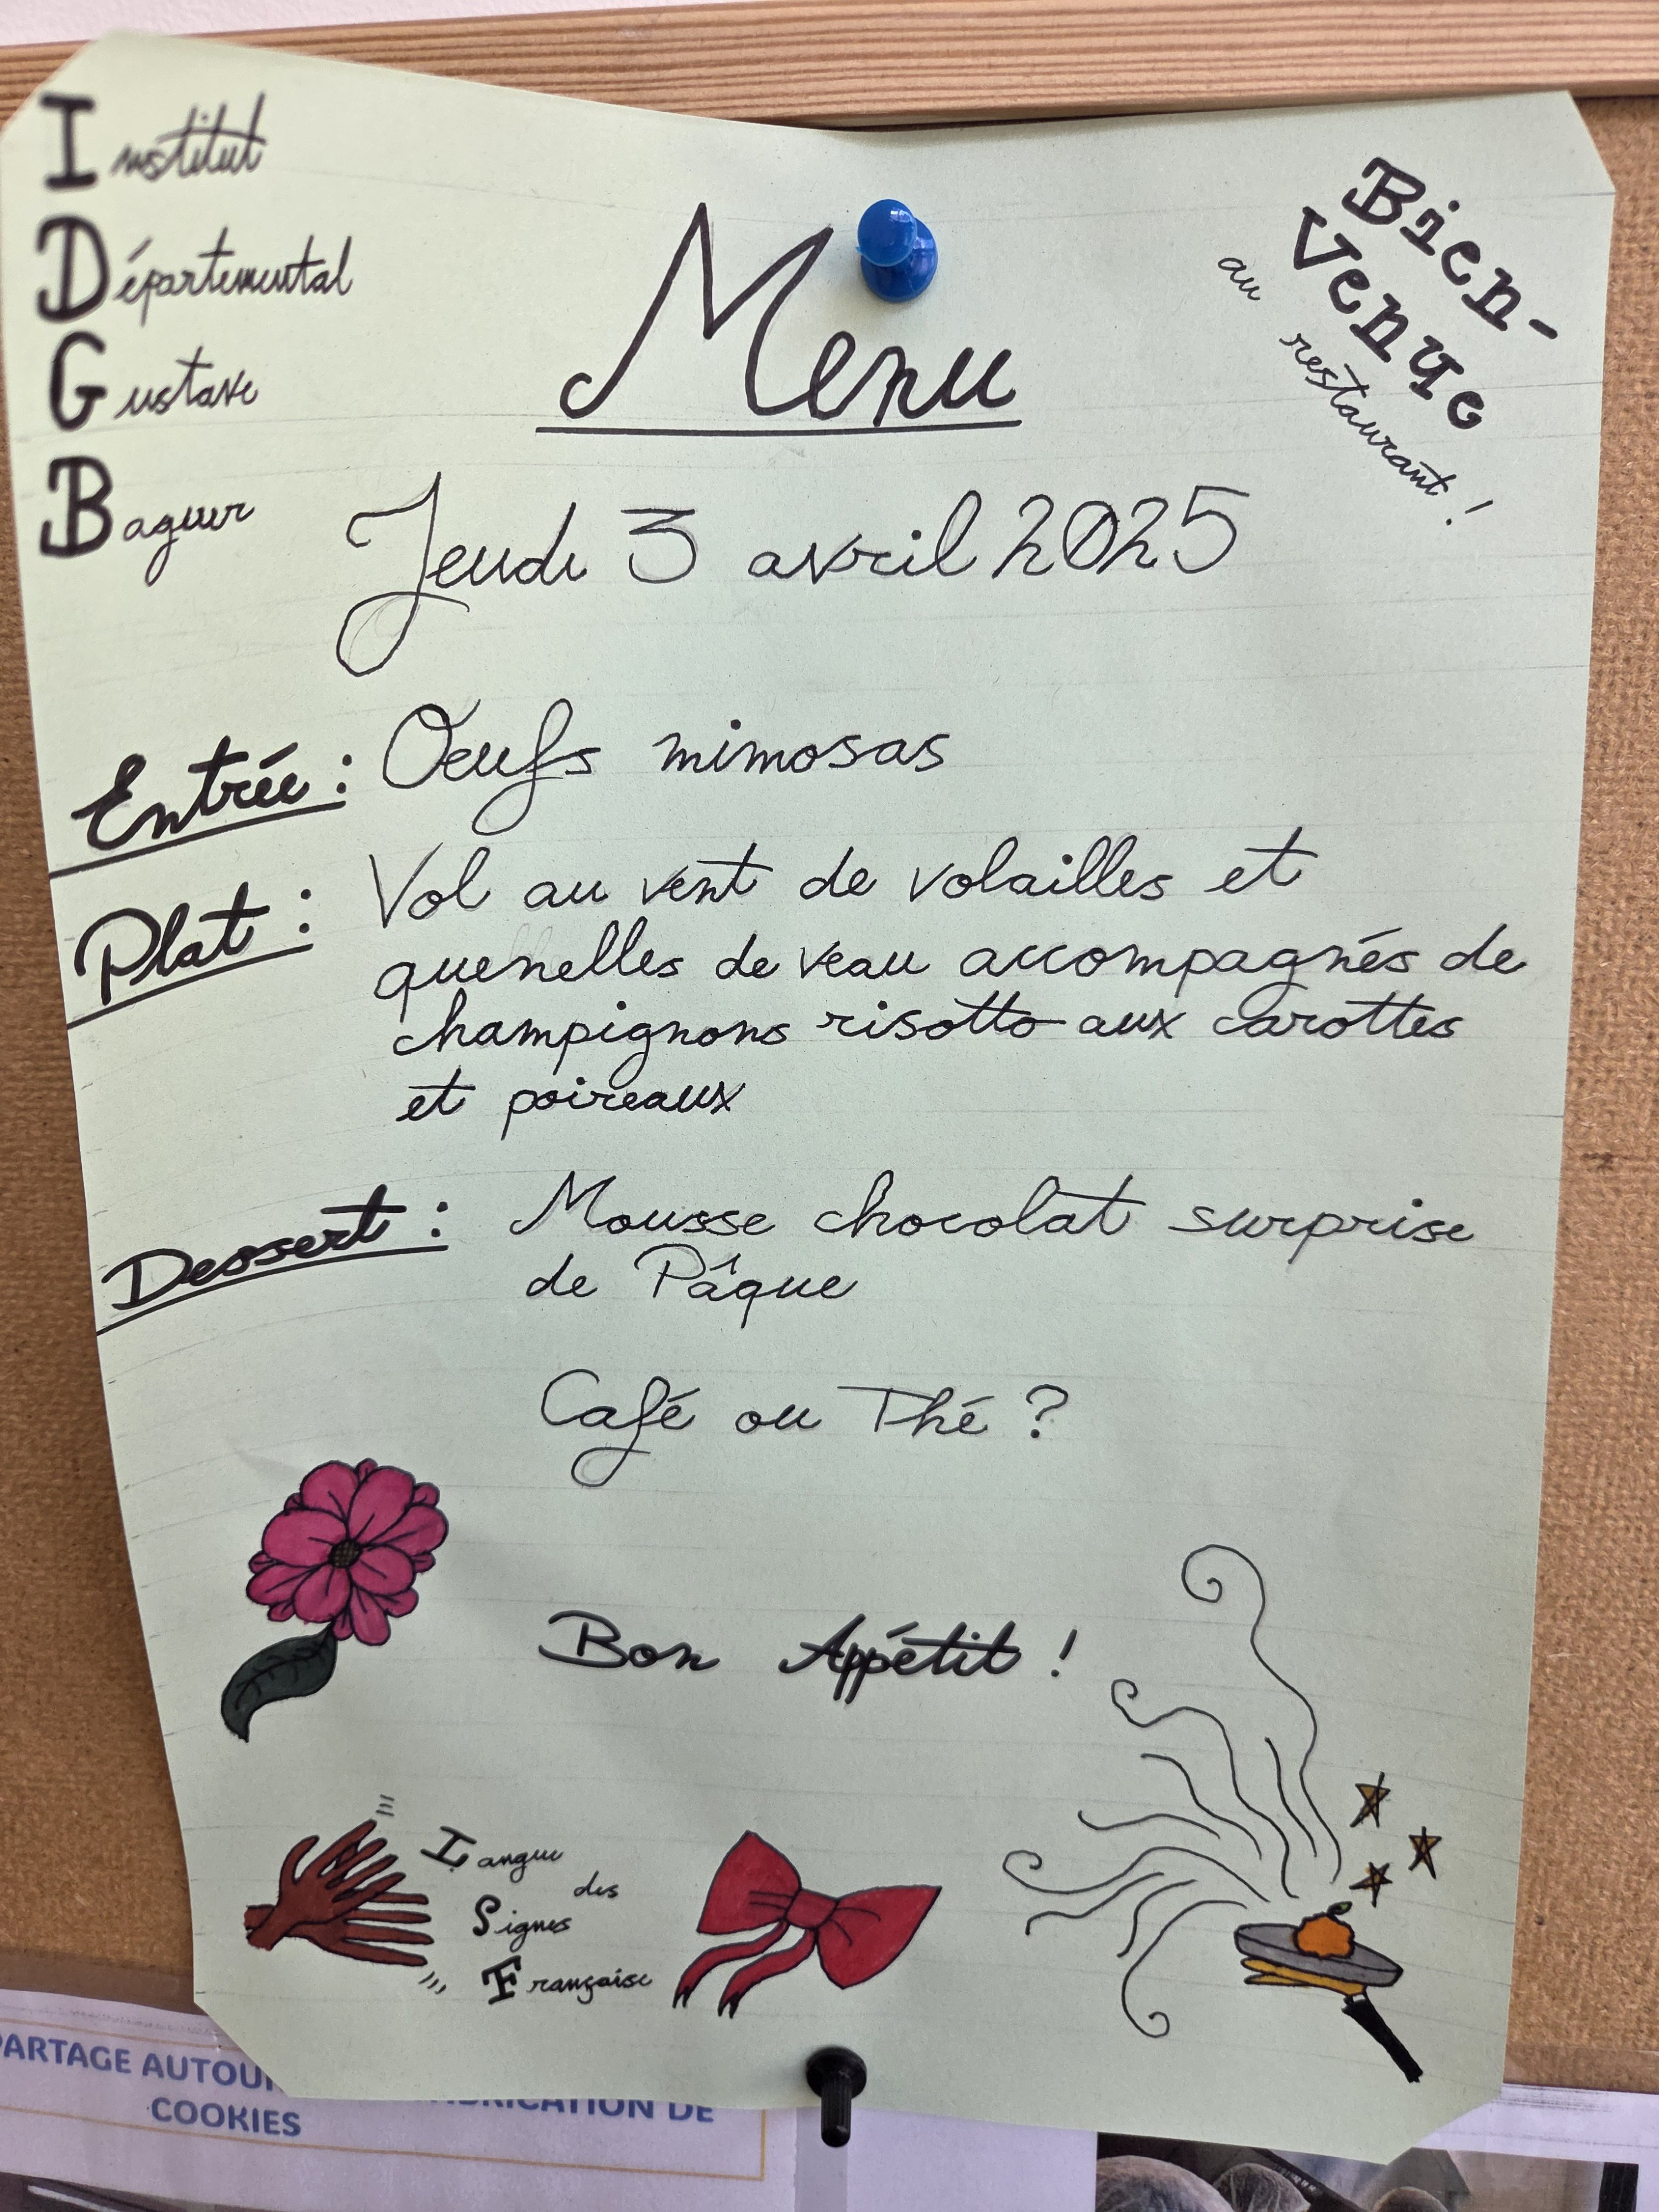 Institut
Départemental
Gustave
Baguer
Bien-
Venue
au restaurant !
Menu
Jeudi 3 avril 2025
Entrée : Oeufs mimosas
Plat : Vol au vent de volailles et
quenelles de veau accompagnés de
champignons risotto aux carottes
et poireaux
Dessert : Mousse chocolat surprise
de Pâque
Café ou Thé ?
Bon Appétit !
Langue
des
Signes
Française
PARTAGE AUTOUR
FABRICATION DE
COOKIES